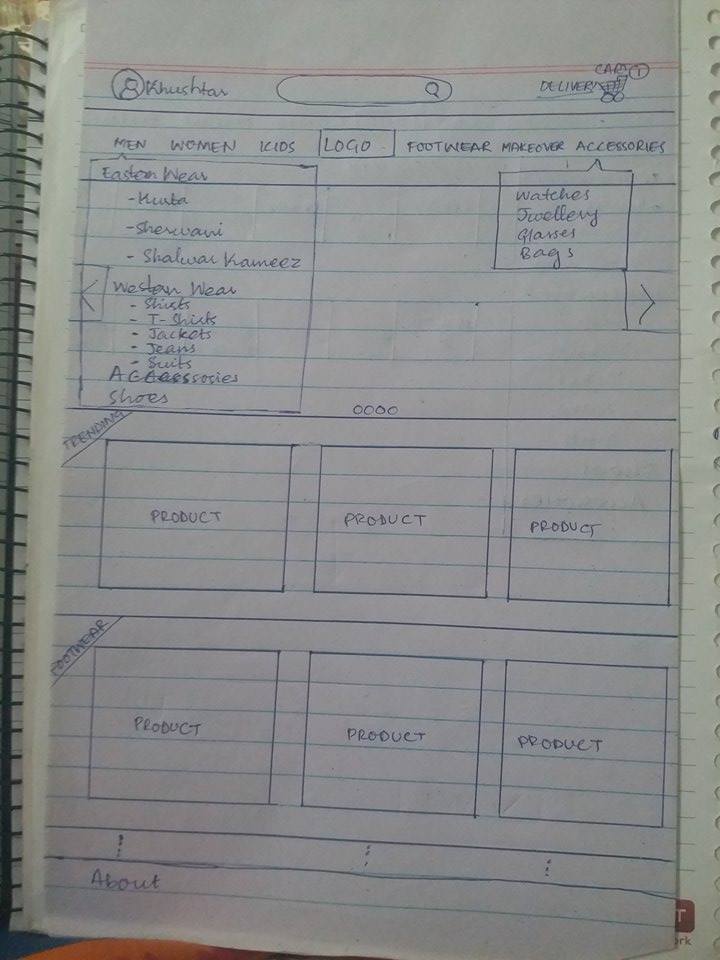 Khushtar
CART 1
DELIVERY
MEN WOMEN KIDS LOGO FOOTWEAR MAKEOVER ACCESSORIES
Eastern Wear
- Kurta
- Sherwani
- Shalwar Kameez
Western Wear
- Shirts
- T-Shirts
- Jackets
- Jeans
- Suits
Accessories
Shoes
Watches
Jwellery
Glasses
Bags
TRENDING
PRODUCT PRODUCT PRODUCT
FOOTWEAR
PRODUCT PRODUCT PRODUCT
About
T
rk